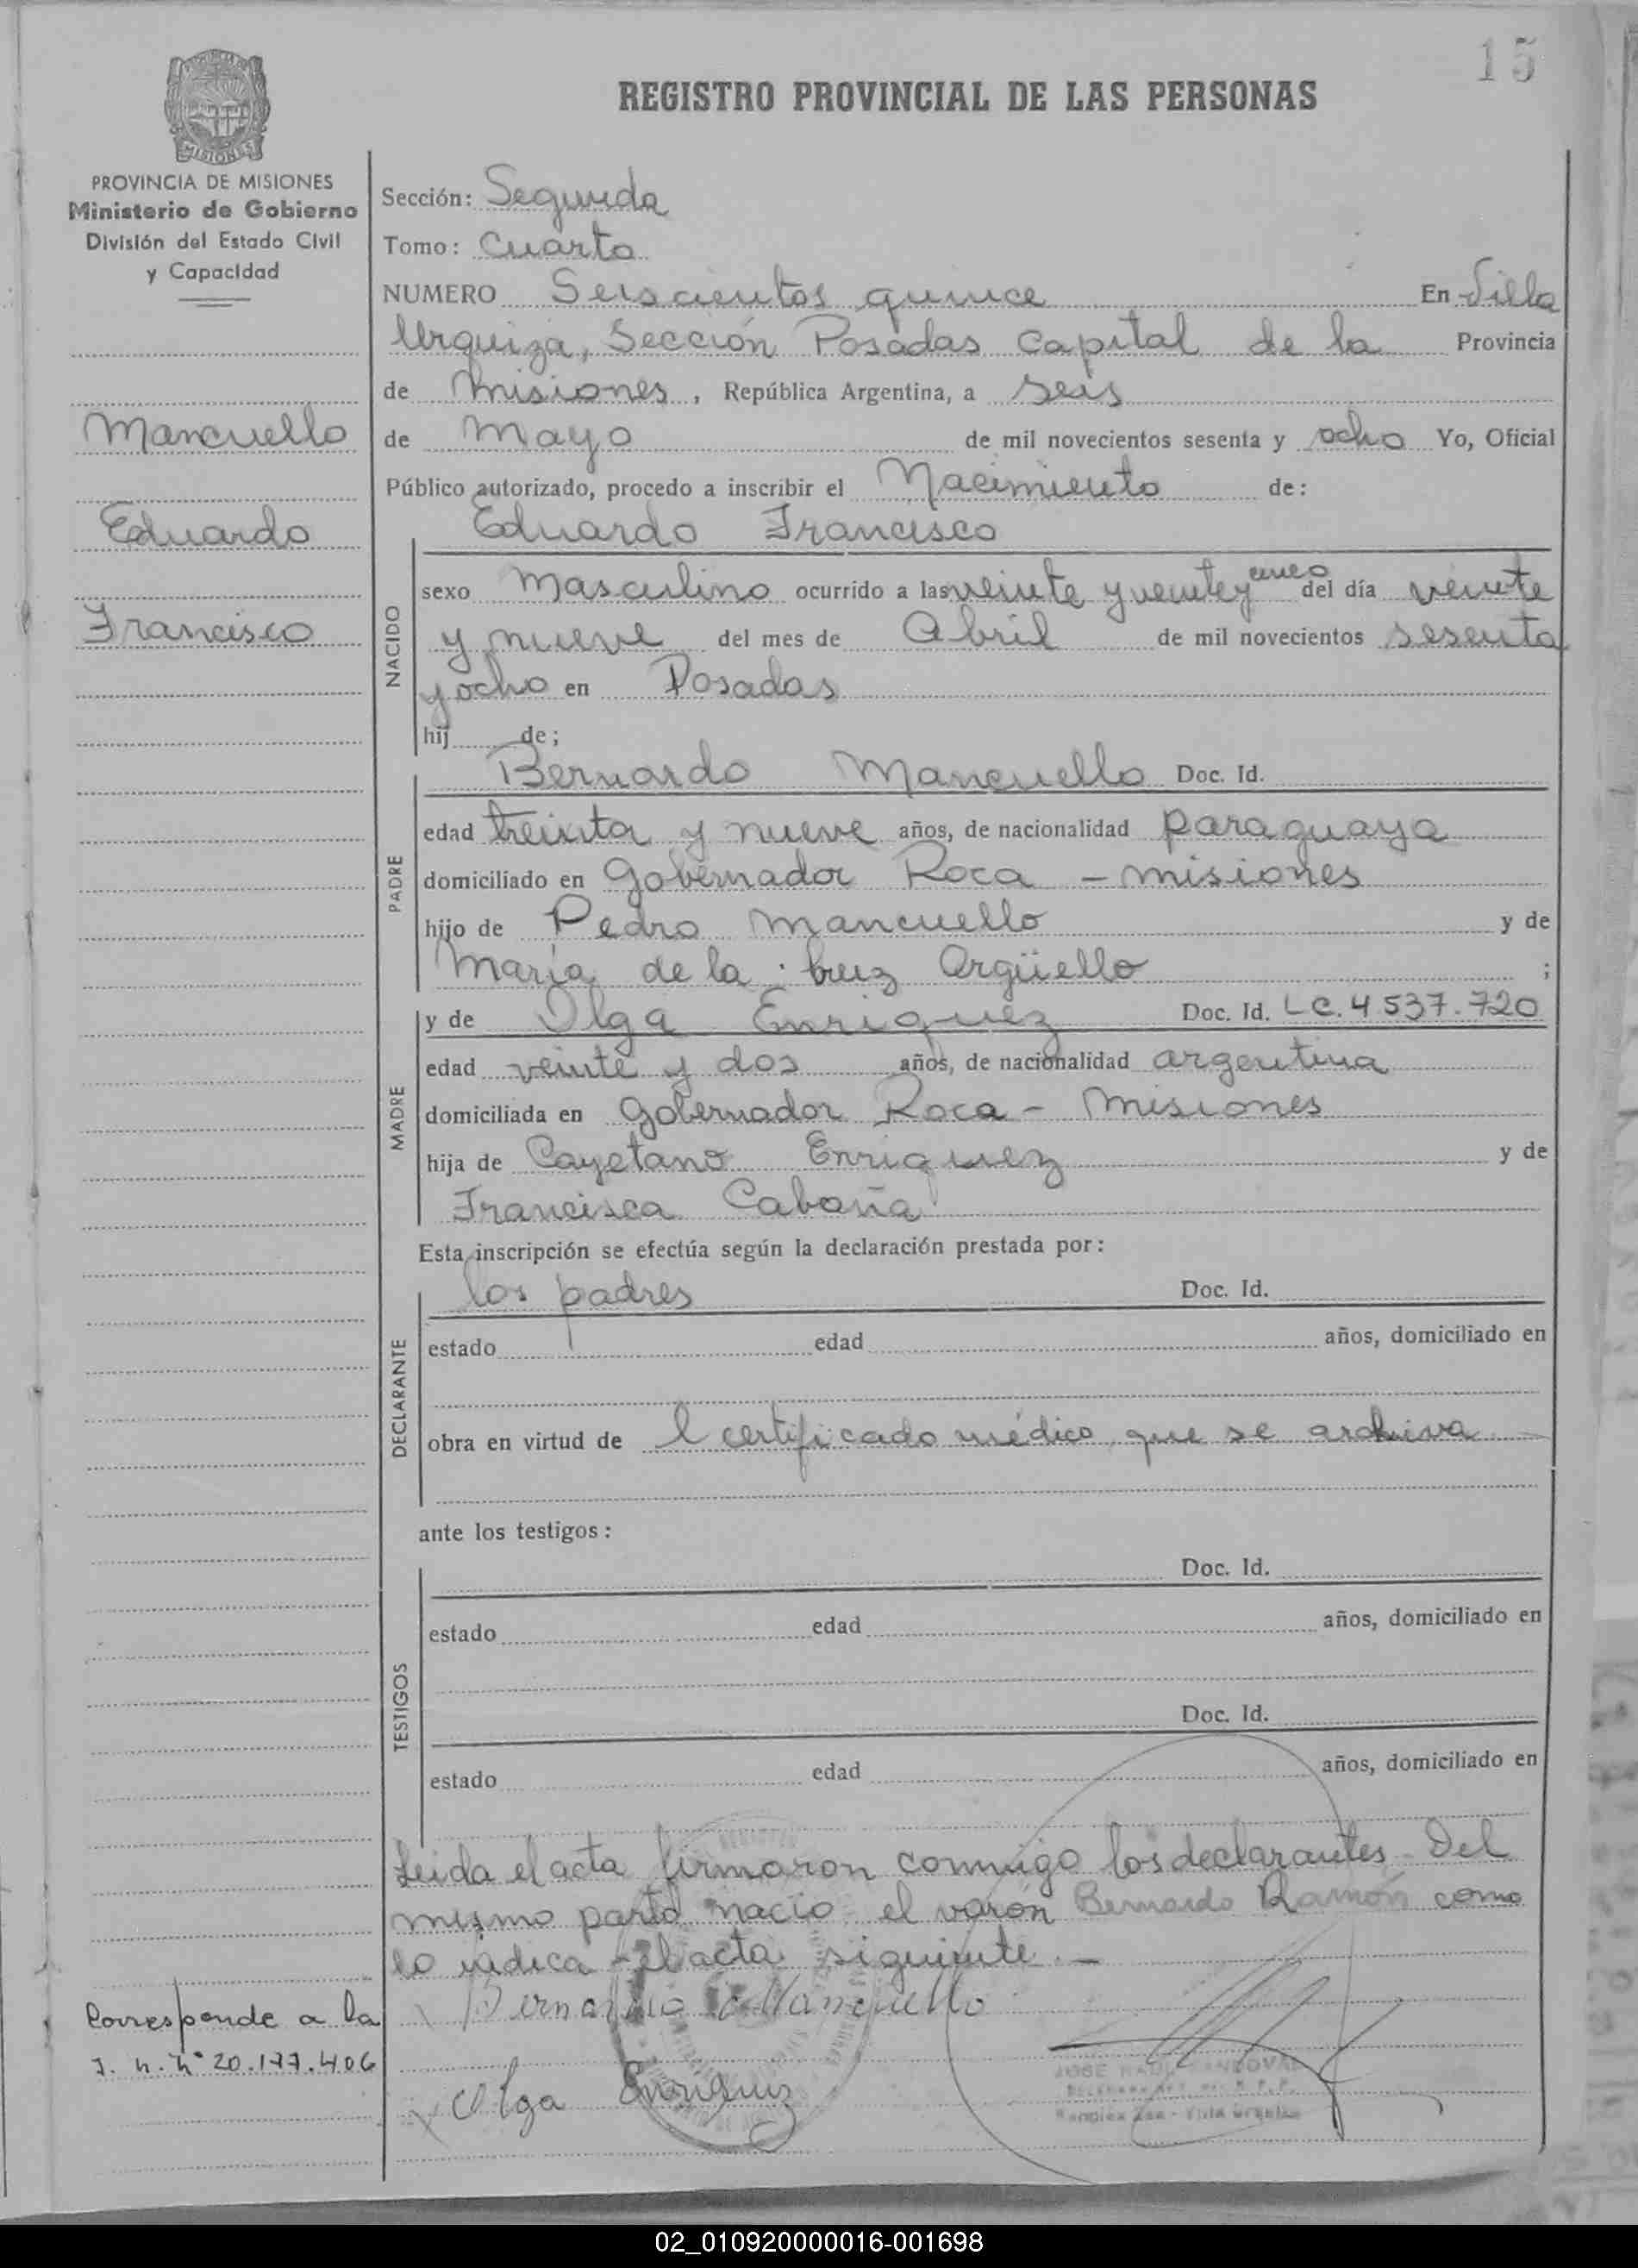 15
REGISTRO PROVINCIAL DE LAS PERSONAS
MISIONES
PROVINCIA DE MISIONES
Ministerio de Gobierno
División del Estado Civil
y Capacidad
Mancuello
Eduardo
Francisco
Sección: Segunda
Tomo: Cuarto
NUMERO Seiscientos quince En Villa
Urquiza, Sección Posadas Capital de la Provincia
de Misiones, República Argentina, a Seis
de Mayo de mil novecientos sesenta y ocho Yo, Oficial
Público autorizado, procedo a inscribir el Nacimiento de:
Eduardo Francisco
NACIDO
sexo Masculino ocurrido a las veinte y veinte y cinco del día veinte
y nueve del mes de Abril de mil novecientos sesenta
y ocho en Posadas
hij de;
PADRE
Bernardo Mancuello Doc. Id.
edad treinta y nueve años, de nacionalidad paraguaya
domiciliado en Gobernador Roca - Misiones
hijo de Pedro Mancuello y de
María de la Cruz Argüello ;
MADRE
y de Olga Enriquez Doc. Id. LC. 4.537.720
edad veinte y dos años, de nacionalidad argentina
domiciliada en Gobernador Roca - Misiones
hija de Cayetano Enriquez y de
Francisca Cabaña
Esta inscripción se efectúa según la declaración prestada por:
DECLARANTE
los padres Doc. Id.
estado edad años, domiciliado en
obra en virtud de l certificado médico que se archiva
ante los testigos:
TESTIGOS
Doc. Id.
estado edad años, domiciliado en
Doc. Id.
estado edad años, domiciliado en
Leida el acta firmaron conmigo los declarantes - Del
mismo parto nació el varón Bernardo Ramón como
lo indica el acta siguiente. -
Bernardo Mancuello
Olga Enriquez
Corresponde a la
I. n. N° 20.177.406
JOSE RAUL SANDOVAL
02_010920000016-001698